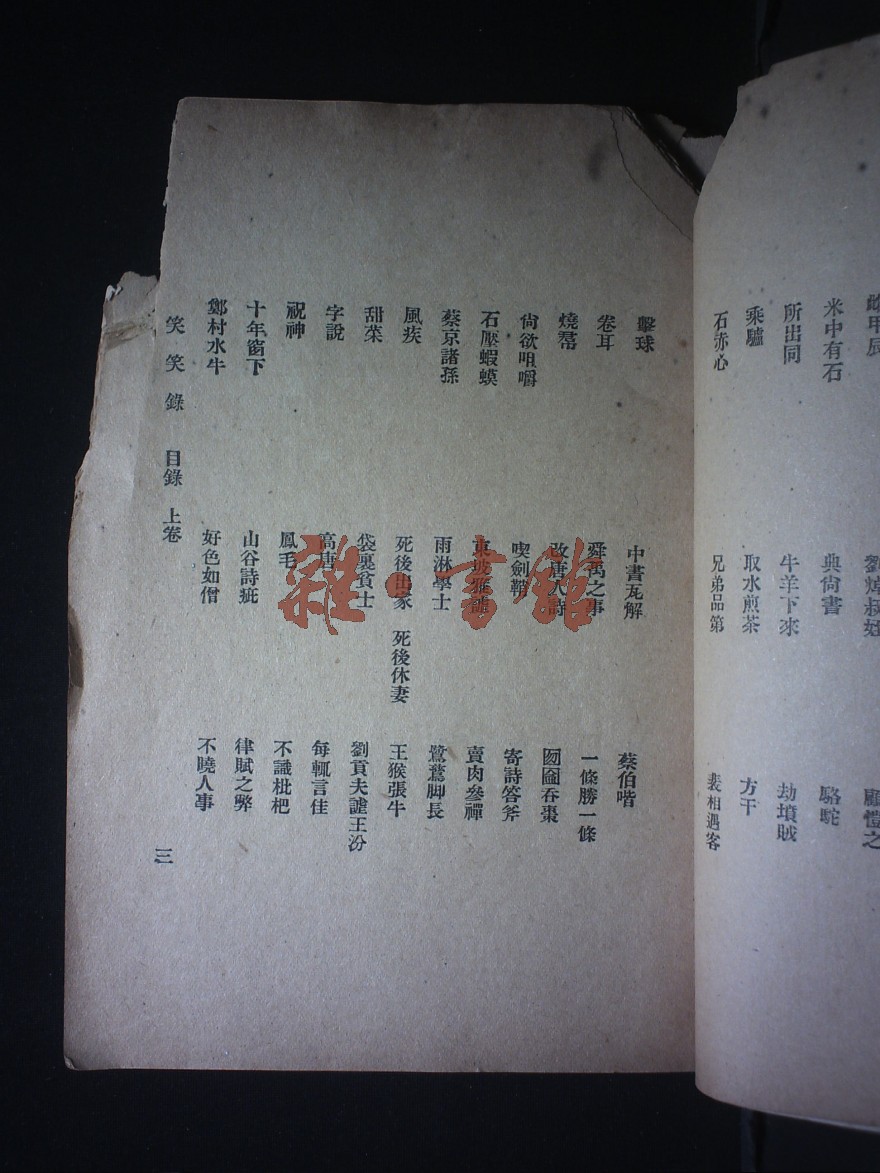 米中有石 典尚書 駱駝
所出同 牛羊下來 劫墳賊
乘驢 取水煎茶 方干
石赤心 兄弟品第 裴相遇客
擊球 中書瓦解 蔡伯喈
卷耳 舜禹之事 一條勝一條
燒帬 改唐人詩 囫圇吞棗
尙欲咀嚼 喫劍鞘 寄詩答斧
石壓蝦蟆 東坡雅謔 賣肉參禪
蔡京諸孫 雨淋學士 鷺鷥脚長
風疾 死後出家 死後休妻 王猴張牛
甜菜 袋裏貧士 劉貢夫謔王汾
字說 高唐 每輒言佳
祝神 鳳毛 不識枇杷
十年窗下 山谷詩疵 律賦之弊
鄭村水牛 好色如僧 不曉人事
笑笑錄 目錄 上卷 三
雜·書館